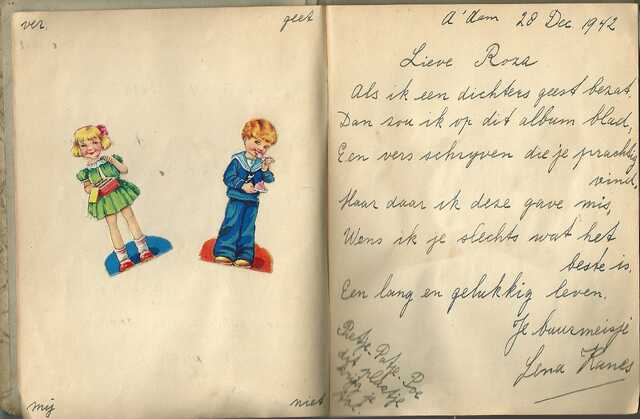 ver.
geet
mij
niet
A'dam 28 Dec 1942
Lieve Roza
Als ik een dichters geest bezat.
Dan zou ik op dit album blad,
Een vers schryven die je prachtig
vind,
Maar daar ik deze gave mis,
Wens ik je slechts wat het
beste is.
Een lang en gelukkig leven.
Je buurmeisje
Lena Kanes
Retje Patje Poe
dit plaatje
krijg je
toe.